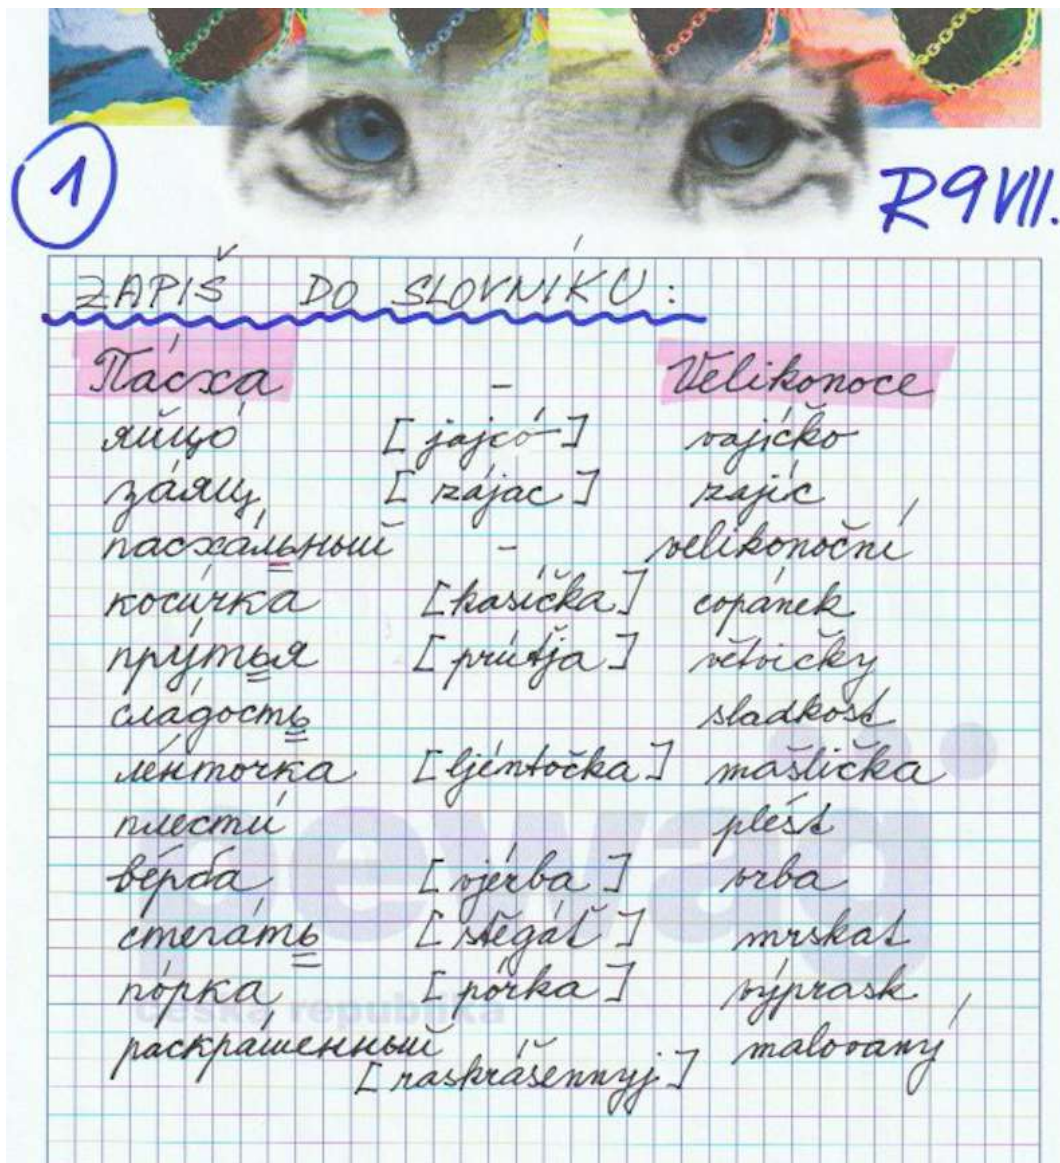 1
R9VII.
ZAPIŠ DO SLOVNÍKU:
Па́сха - Velikonoce
яйцо́ [jajcó] vajíčko
за́яц [zájac] zajíc
пасха́льный - velikonoční
коси́чка [kasíčka] copánek
пру́тья [prúťja] větvičky
сла́дость sladkost
ле́нточка [ljéntočka] mašlička
плести́ plést
ве́рба [vjérba] vrba
стега́ть [stěgáť] mrskat
по́рка [pórka] výprask
раскра́шенный malovaný
[raskrášennyj]
pewag
česká republika